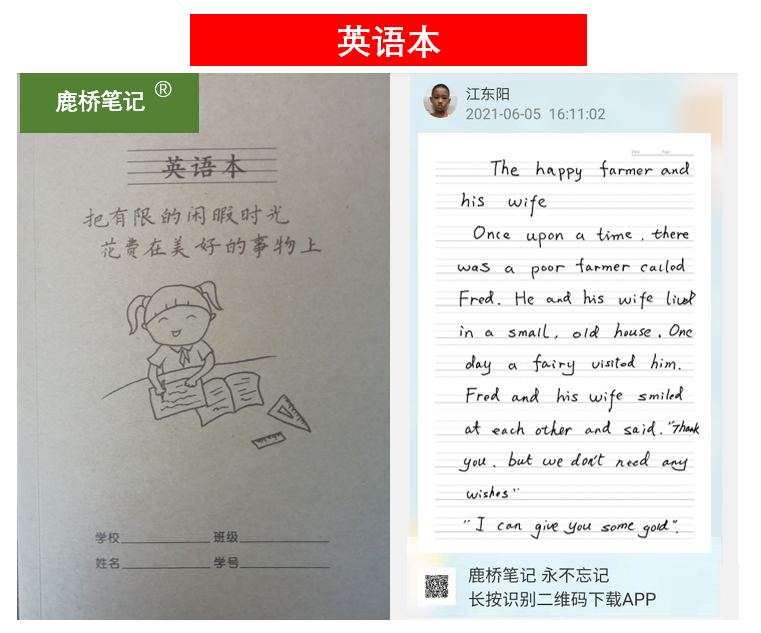 英语本
鹿桥笔记 ®
英语本
把有限的闲暇时光
花费在美好的事物上
学校 班级
姓名 学号
江东阳
2021-06-05 16:11:02
Date Page
The happy farmer and
his wife
Once upon a time. there
was a poor farmer called
Fred. He and his wife lived
in a small, old house. One
day a fairy visited him.
Fred and his wife smiled
at each other and said. "Thank
you. but we don't need any
wishes"
"I can give you some gold".
鹿桥笔记 永不忘记
长按识别二维码下载APP